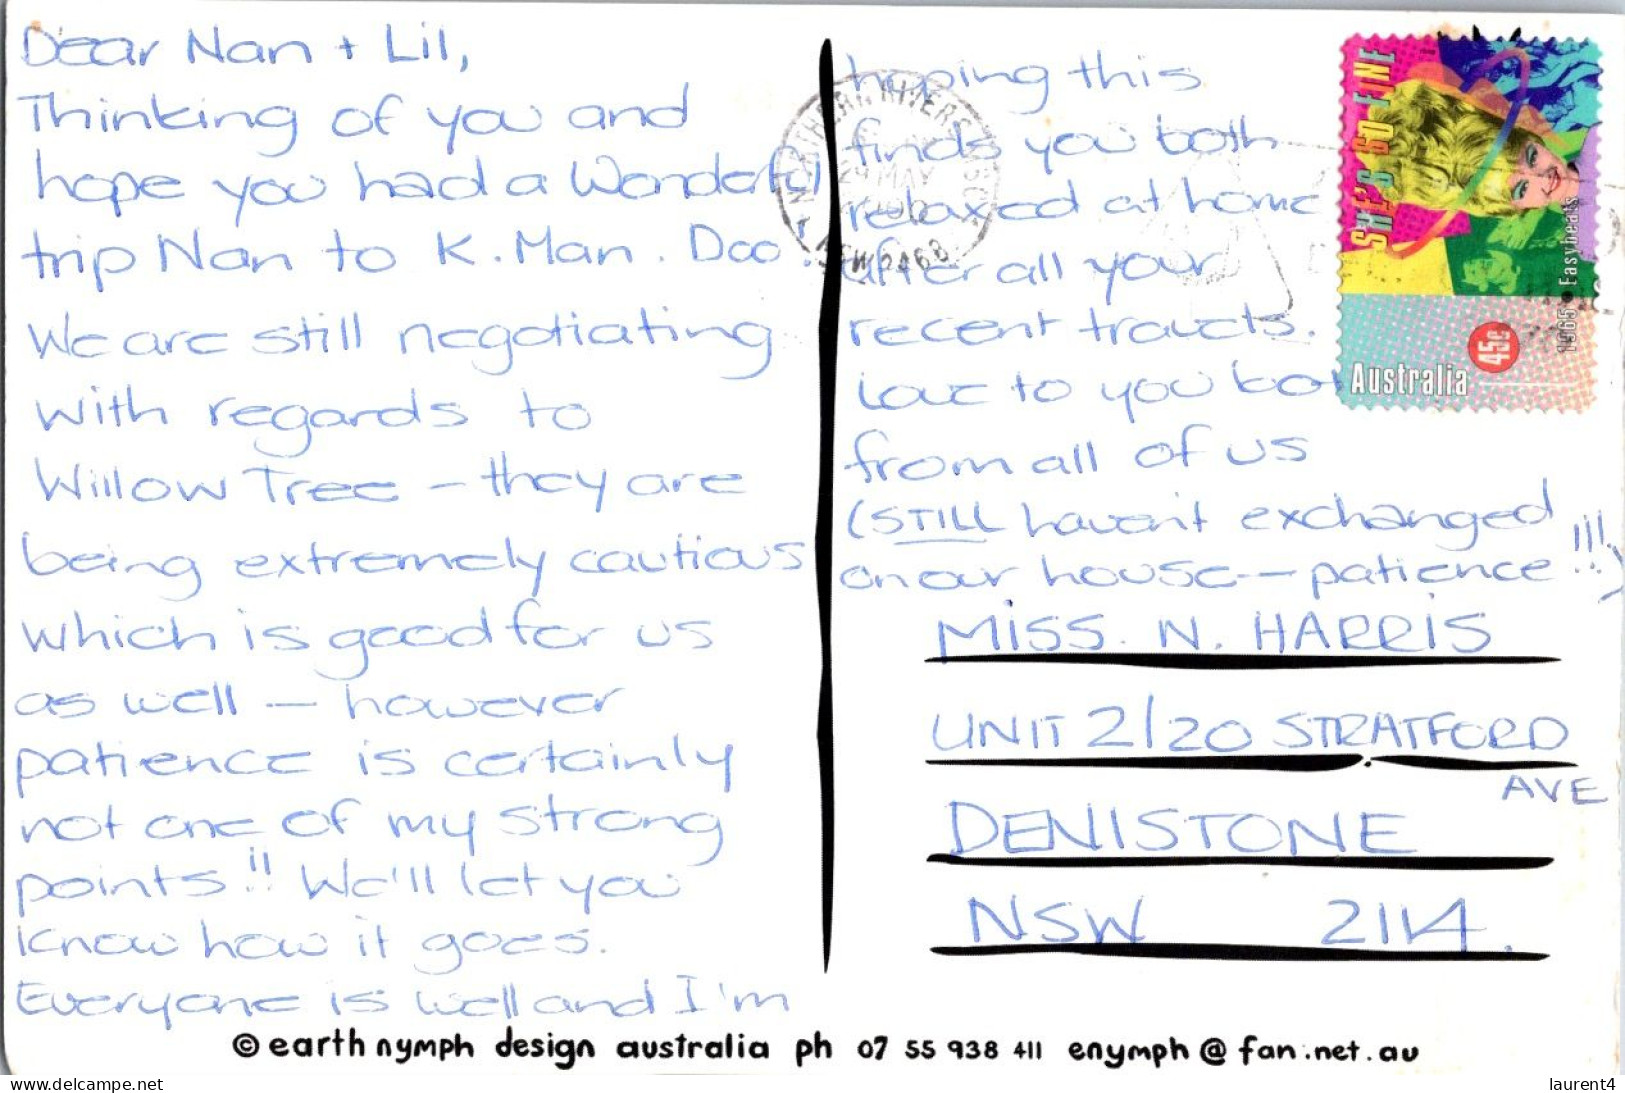 Dear Nan + Lil,
Thinking of you and
hope you had a Wonderful
trip Nan to K. Man. Doo!
We are still negotiating
with regards to
Willow Tree – they are
being extremely cautious
which is good for us
as well – however
patience is certainly
not one of my strong
points!! We'll let you
know how it goes.
Everyone is well and I'm
hoping this
finds you both
relaxed at home
after all your
recent travels.
Love to you bot
from all of us
(STILL haven't exchanged
on our house – patience !!!)
MISS. N. HARRIS
UNIT 2/20 STRATFORD
AVE
DENISTONE
NSW 2114.
NORTHERN RIVERS
MAY
NSW 2468
SHE'S SO FINE
1965 • Easybeats
45c
Australia
© earth nymph design australia ph 07 55 938 411 enymph@fan.net.au
www.delcampe.net
laurent4